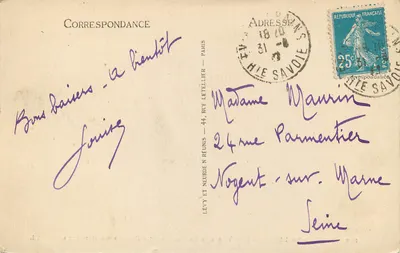 CORRESPONDANCE
Bons baisers - a bientôt
Louise
LÉVY ET NEURDEIN RÉUNIS - 44, RUE LETELLIER - PARIS
ADRESSE
18
31 -8
HTE SAVOIE
RÉPUBLIQUE FRANÇAISE
25
Madame Maurin
24 rue Parmentier
Nogent-sur-Marne
Seine